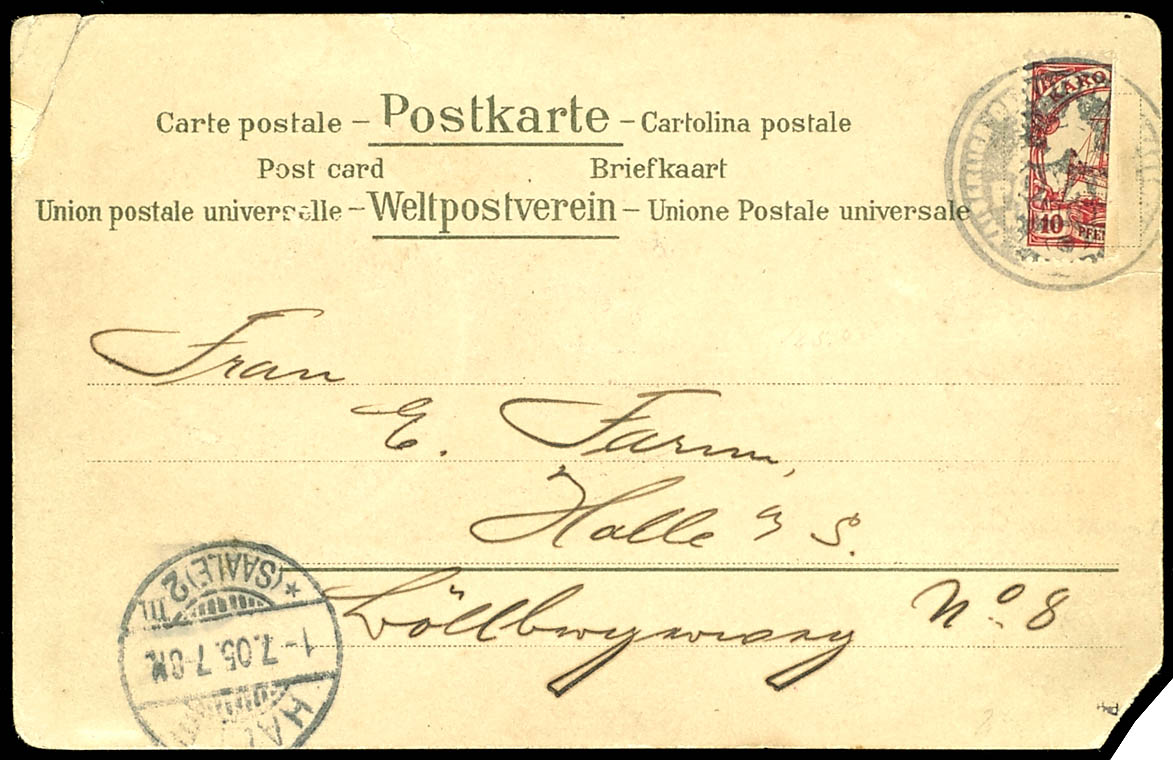 Carte postale – Postkarte – Cartolina postale
Post card Briefkaart
Union postale universelle – Weltpostverein – Unione Postale universale
KARO
10 PFEN
Frau
E. Farm,
Halle a S.
No. 8
HAL
1-7.05.7-8N.
* (SAALE) 2 m